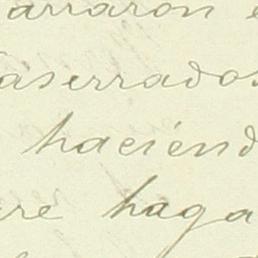 arraron e
aserrados
haciend
re haga